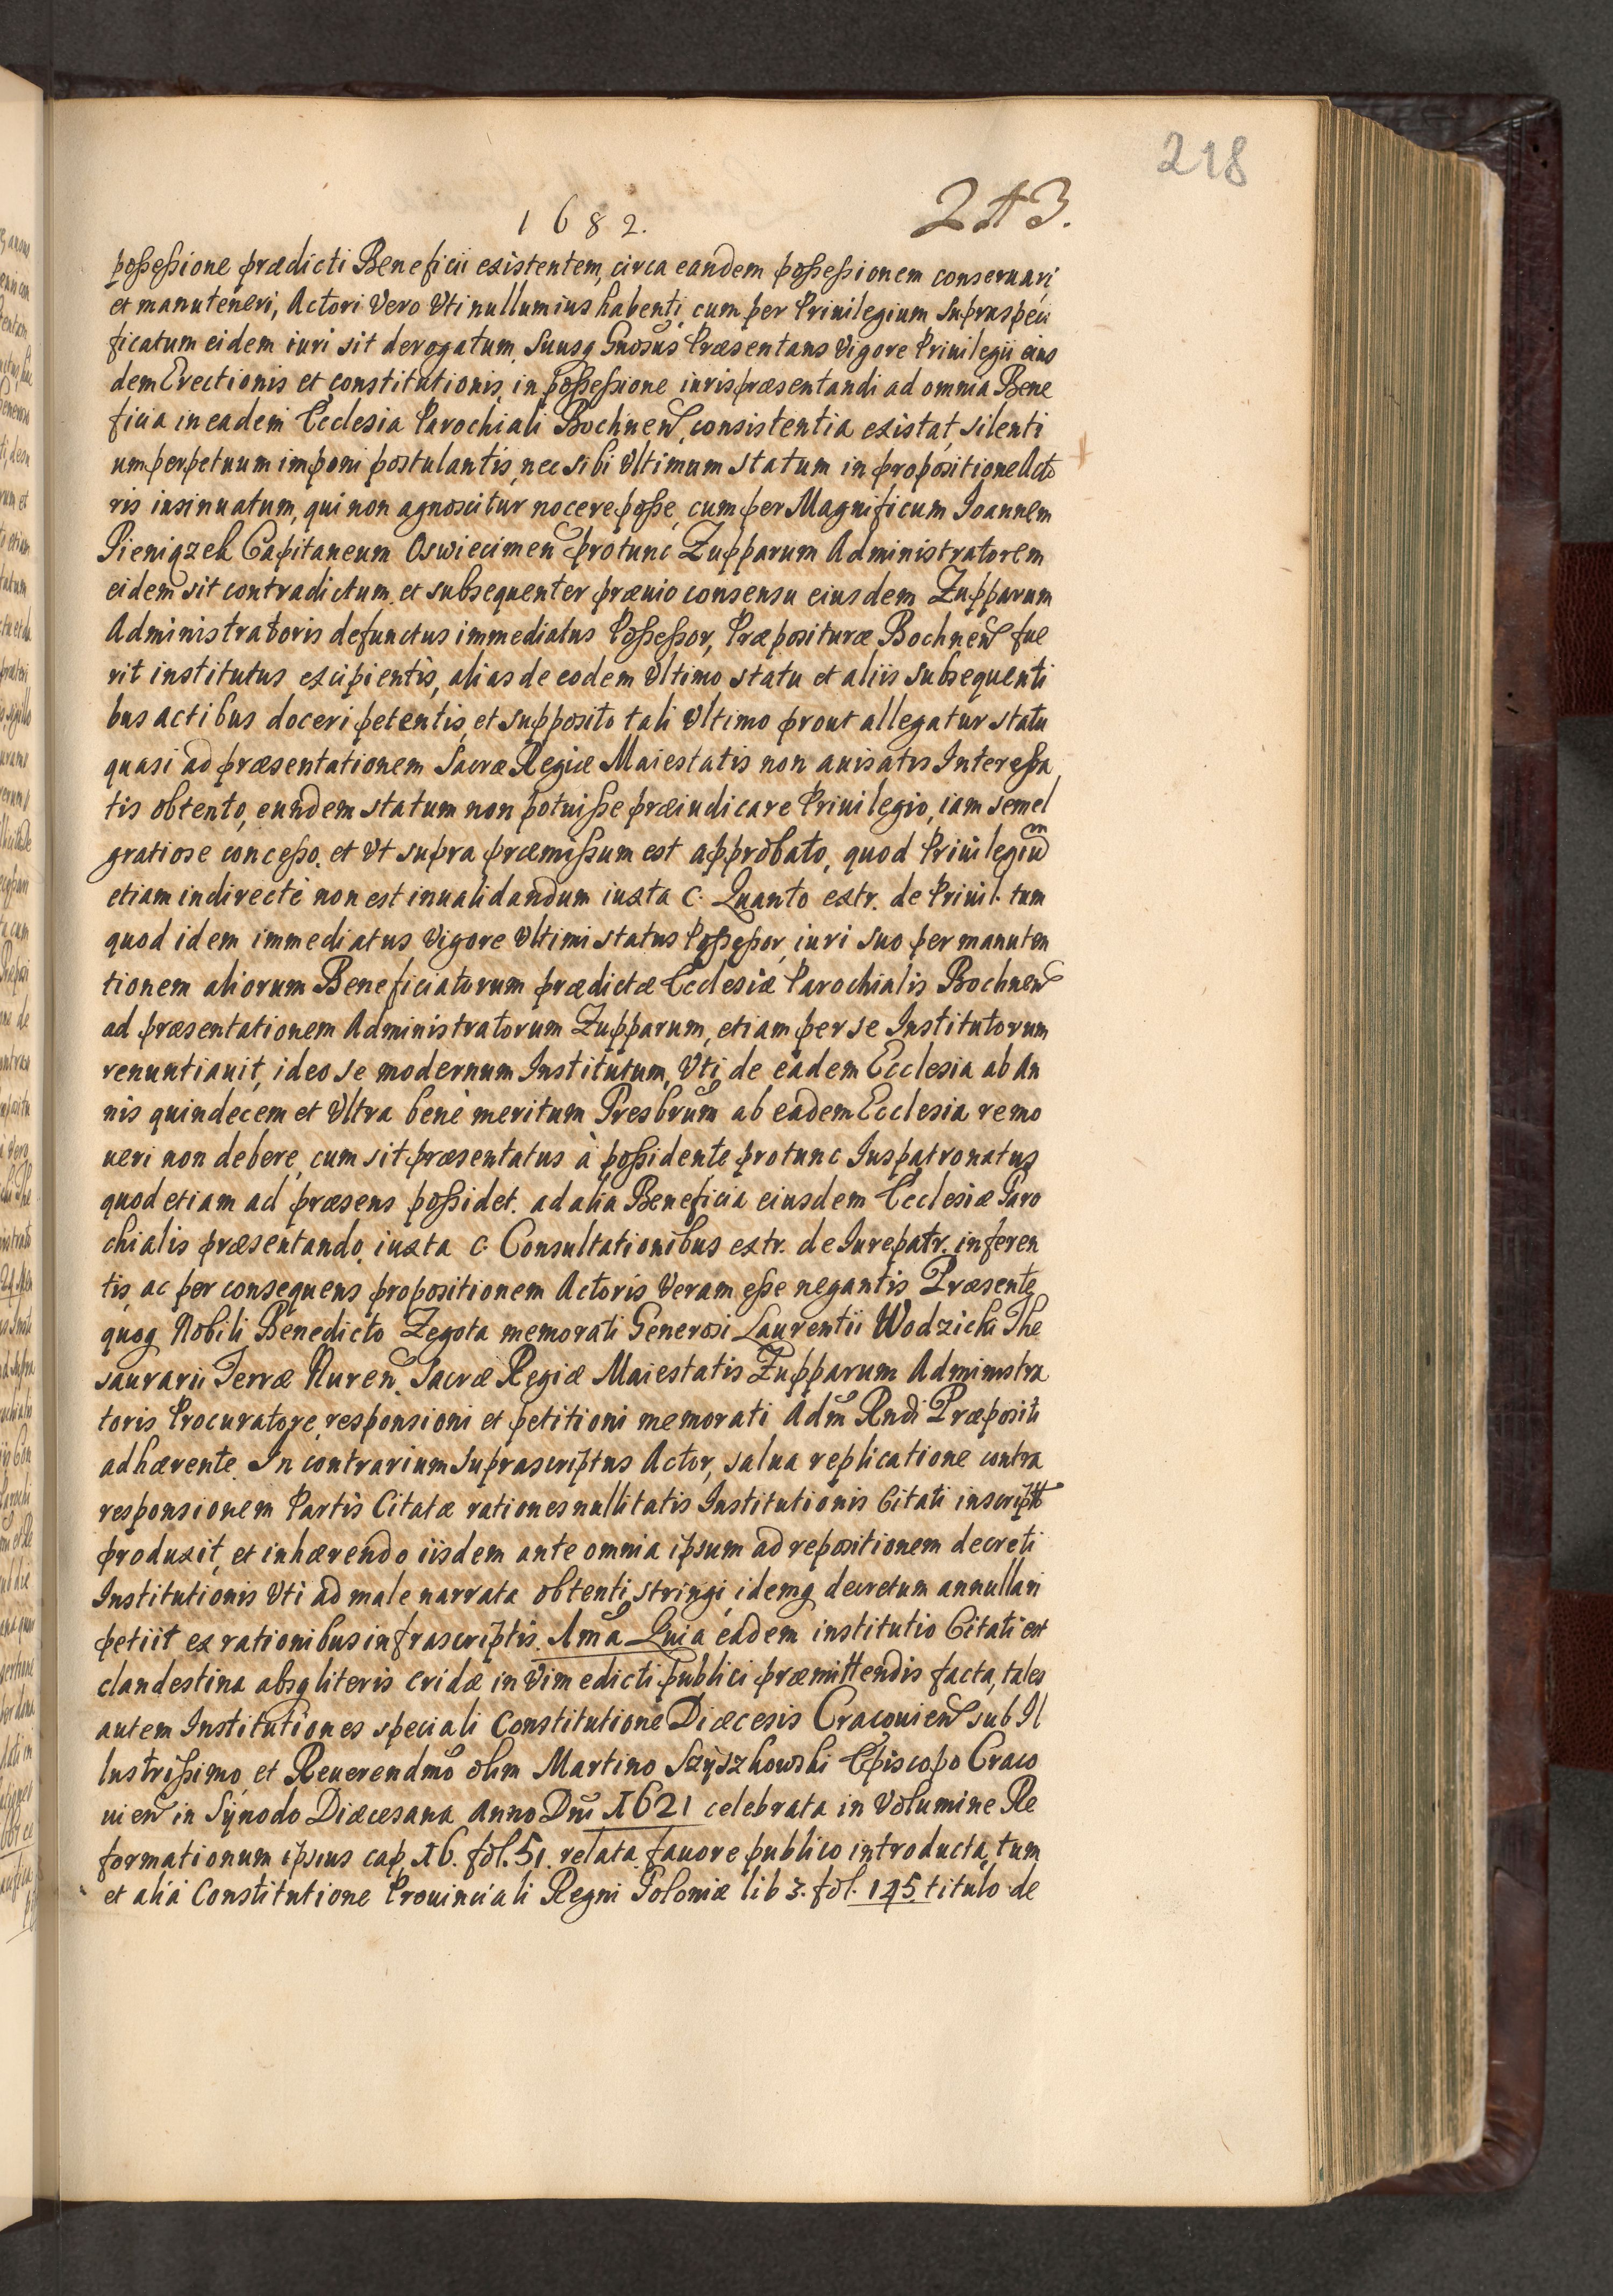 218
213.
1682.
possessione prædicti Beneficii existentem, circa eandem possessionem conseruari
et manuteneri, Actori Vero Vti nullum ius habenti, cum per Priuilegium supraspeci
ficatum eidem iuri sit derogatum, suusq Gnosus Præsentans Vigore Priuilegii eius
dem Erectionis et constitutionis, in possessione iuris præsentandi ad omnia Bene
ficia in eadem Ecclesia Parochiali Bochnen, consistentia existat, silenti
um perpetuum imponi postulantis, nec sibi Vltimum statum in propositione Acto
ris insinuatum, qui non agnoscitur nocere posse, cum per Magnificum Ioannem
Pieniązek Capitaneum Oswiecimen protunc Zupparum Administratorem
eidem sit contradictum, et subsequenter præuio consensu eiusdem Zupparum
Administratoris defunctus immediatus Possessor, Præpositura Bochnen fue
rit institutus excipientis, alias de eodem Vltimo statu et aliis subsequenti
bus actibus doceri petentis, et supposito tali Vltimo prout allegatur statu
quasi ad præsentationem Sacræ Regiæ Maiestatis non auisatis Interessa
tis obtento, eundem statum non potuisse præiudicare Priuilegio, iam semel
gratiose concesso, et Vt supra præmissum est approbato, quod Priuilegium
etiam indirecté non est inualidandum iuxta c. Quanto extr. de Priuil. tum
quod idem immediatus Vigore Vltimi status Possessor, iuri suo per manuten
tionem aliorum Beneficiatorum prædictæ Ecclesiæ Parochialis Bochnen
ad præsentationem Administratorum Zupparum, etiam per se Institutorum
renuntiauit, ideo se modernum Institutum, Vti de eadem Ecclesia ab An
nis quindecem et Vltra bené meritum Presbrum ab eadem Ecclesia remo
ueri non debere, cum sit præsentatus à possidente protunc Iuspatronatus
quod etiam ad præsens possidet. ad alia Beneficia eiusdem Ecclesiæ Paro
chialis præsentando, iuxta c. Consultationibus extr. de Iurepatr. inferen
tis, ac per consequens propositionem Actoris Veram esse negantis Præsente
quoq Nobili Benedicto Zegota memorati Generosi Laurentii Wodzicki The
saurarii Terræ Nuren. Sacræ Regiæ Maiestatis Zupparum Administra
toris Procuratore, responsioni et petitioni memorati Adm Rndi Præpositi
adhærente. In contrarium suprascriptus Actor, salua replicatione contra
responsionem Partis Citatæ rationes nullitatis Institutionis Citati inscriptt
produxit, et inhærendo iisdem ante omnia ipsum ad repositionem decreti
Institutionis Vti ad male narrata obtenti, stringi, idemq decretum annullari
petiit ex rationibus infrascriptis. Ima Quia eadem institutio Citati est
clandestina absq literis cridæ in Vim edicti publici præmittendis facta, tales
autem Institutiones speciali Constitutione Diæcesis Cracouien sub Il
lustrissimo et Reuerendmo olim Martino Szyszkowski Episcopo Craco
uien in Synodo Diæcesana Anno Dni 1621 celebrata in Volumine Re
formationum ipsius cap. 16. fol. 51. relata fauore publico introducta, tum
et alia Constitutione Prouinciali Regni Poloniæ lib 3. fol. 145. titulo de